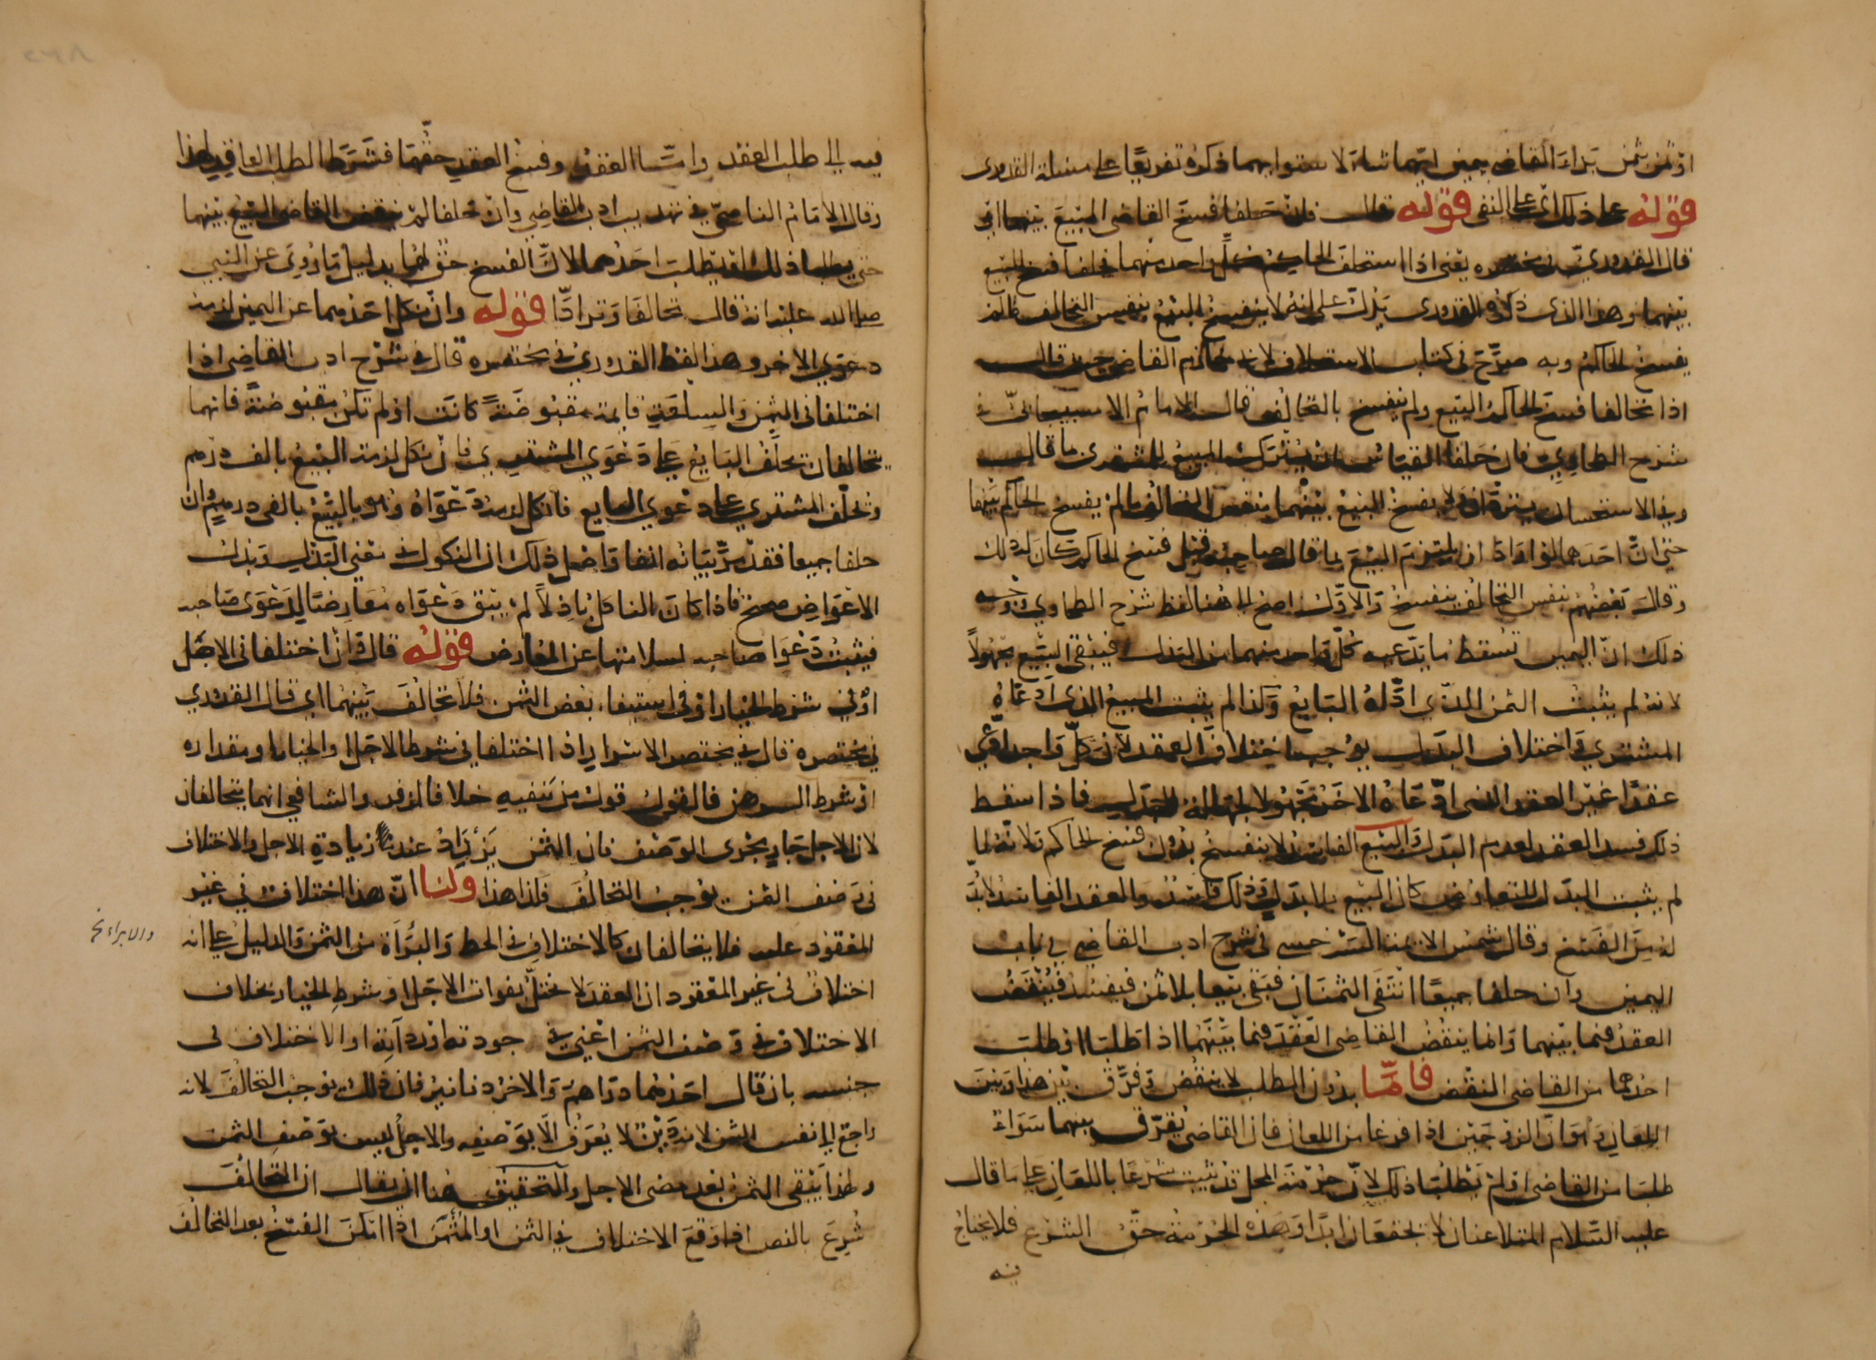 او ثمن بثمن بداء القاضي بيمين ايهما شاء لاستوايهما ذكره تفريعا على مسئلة القدوري
قوله على ذلك اي على النفي قوله قال فان حلفا فسخ القاضي البيع بينهما اي
قال القدوري في مختصره يعني اذا استحلف الحاكم كل واحد منهما فحلفا فسخ البيع
بينهما وهذا الذي ذكره القدوري يدل على انه لا ينفسخ البيع بنفس التحالف ما لم
يفسخ الحاكم وبه صرح في كتاب الاستحلاف لابي حازم القاضي حيث قال
اذا تحالفا فسخ الحاكم البيع ولم ينفسخ بالتحالف قال الامام الاسبيجابي في
شرح الطحاوي فان حلفا القياس ان يترك المبيع للمشتري بما قال
وفي الاستحسان يترادان ولا يفسخ البيع بينهما بنفس التحالف ما لم يفسخ الحاكم بينهما
حتى ان احدهما لو اراد ان يلتزم البيع بما قال صاحبه قبل فسخ الحاكم كان له ذلك
وقال بعضهم بنفس التحالف ينفسخ والاول اصح الى هنا لفظ شرح الطحاوي وجه
ذلك ان اليمين تسقط ما يدعيه كل واحد منهما من البدل فيبقى البيع مجهولا
لانه لم يثبت الثمن الذي ادعاه البايع وكذا لم يثبت المبيع الذي ادعاه
المشتري واختلاف البدل يوجب اختلاف العقد لان كل واحد يدعي
عقدا غير العقد الذي ادعاه الاخر مجهولا لجهالة البدل فاذا سقط
ذلك فسد العقد لعدم البدل والبيع الفاسد لا ينفسخ بدون فسخ الحاكم ولانه لما
لم يثبت البدل للتعارض كان البيع بلا بدل وذلك فاسد والعقد الفاسد لا بد
له من الفسخ وقال شمس الايمة السرخسي في شرح ادب القاضي في باب
اليمين وان حلفا جميعا انتفى الثمنان فبقي بيعا بلا ثمن فيفسد فينقض
العقد فيما بينهما وانما ينقض القاضي العقد فيما بينهما اذا طلبا او طلب
احدهما من القاضي النقض فاما بدون الطلب لا ينقض وفرق بين هذا وبين
اللعان وهو ان الزوجين اذا فرغا من اللعان فان القاضي يفرق بينهما سواء
طلبا من القاضي او لم يطلبا ذلك لان حرمة المحل قد ثبتت شرعا باللعان على ما قال
عليه السلام المتلاعنان لا يجتمعان ابدا وهذه الحرمة حق الشرع فلا يحتاج
فيه
فيه الى طلب العبد واما العقد وفسخ العقد حقهما فشرط الطلب العاقد لهذا
وقال الامام الناصحي في تهذيب ادب القاضي وان تحلفا لم ينقض القاضي البيع بينهما
حتى يطلبا ذلك او يطلب احدهما لان الفسخ حق لهما بدليل ما روي عن النبي
صلى الله عليه انه قال تحالفا وترادا قوله وان نكل احدهما عن اليمين لزمه
دعوى الاخر وهذا لفظ القدوري في مختصره قال في شرح ادب القاضي اذا
اختلفا في الثمن والسلعة قايمة مقبوضة كانت او لم تكن مقبوضة فانهما
يتحالفان يحلف البايع على دعوى المشتري فان نكل لزمه البيع بالف درهم
ويحلف المشتري على دعوى البايع فان نكل لزمه دعواه وهو البيع بالفي درهم وان
حلفا جميعا فقد مر بيانه انفا واصل ذلك ان النكول في معنى البذل وبذل
الاعواض صحيح فاذا كان الناكل باذلا لم يبق دعواه معارضا لدعوى صاحبه
فيثبت دعوا صاحبه لسلامتها عن المعارض قوله قال وان اختلفا في الاجل
او في شرط الخيار او في استيفاء بعض الثمن فلا تحالف بينهما اي قال القدوري
في مختصره قال في مختصر الاسرار اذا اختلفا في شرط الاجل والخيار او مقداره
او شرط الرهن فالقول قول من ينفيه خلافا لزفر والشافعي انهما يتحالفان
لان الاجل جار مجرى الوصف فان الثمن يزداد عند زيادة الاجل والاختلاف
في وصف الثمن يوجب التحالف فكذا هذا ولنا ان هذا اختلاف في غير
المعقود عليه فلا يتحالفان كالاختلاف في الحط والبراة من الثمن والدليل على انه
والابراء نخ
اختلاف في غير المعقود ان العقد لا يختل بفوات الاجل او شرط الخيار بخلاف
الاختلاف في وصف الثمن اعني في جودته او رداته او الاختلاف في
جنسه بان قال احدهما دراهم والاخر دنانير فان ذلك يوجب التحالف لانه
راجع الى نفس الثمن لانه دين لا يعرف الا بوصفه والاجل ليس بوصف الثمن
ولهذا يبقى الثمن بعد مضي الاجل والتحقيق هنا ان يقال ان التحالف
شرع بالنص اذا وقع الاختلاف في الثمن او المثمن اذا امكن الفسخ بعد التحالف